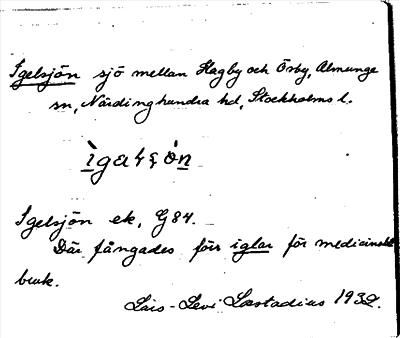 Igelsjön sjö mellan Hagby och Örby, Almunge
sn, Närdinghundra hd, Stockholms l.
Igelsjön ek, G84.
Där fångades förr iglar för medicinskt
bruk.
Lars-Levi Læstadius 1932.